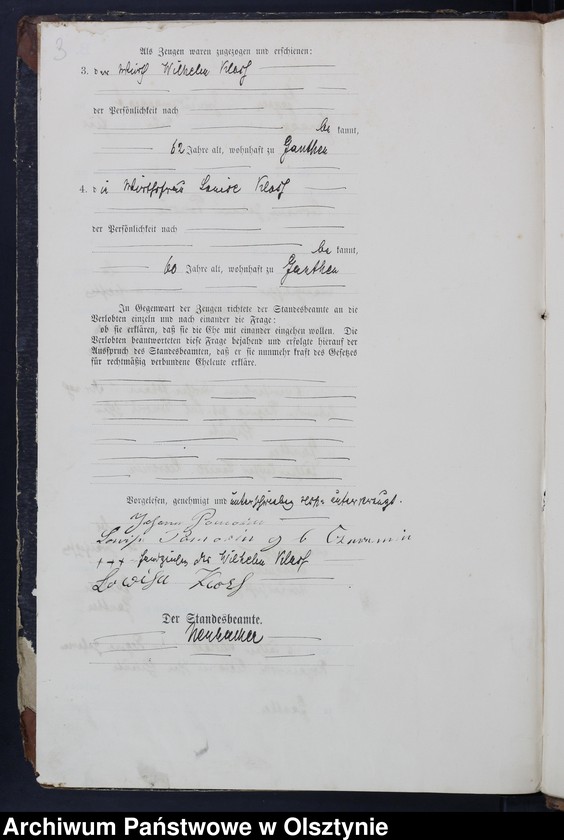 3
Als Zeugen waren zugezogen und erschienen:
3. der Wirth Wilhelm Klosz
der Persönlichkeit nach
be kannt,
62 Jahre alt, wohnhaft zu Ganthen
4. die Wirthsfrau Louise Klosz
der Persönlichkeit nach
be kannt,
60 Jahre alt, wohnhaft zu Ganthen
In Gegenwart der Zeugen richtete der Standesbeamte an die
Verlobten einzeln und nach einander die Frage:
ob sie erklären, daß sie die Ehe mit einander eingehen wollen. Die
Verlobten beantworteten diese Frage bejahend und erfolgte hierauf der
Ausspruch des Standesbeamten, daß er sie nunmehr kraft des Gesetzes
für rechtmäßig verbundene Eheleute erkläre.
Vorgelesen, genehmigt und unterschrieben resp. unterkreuzt.
Johann
Louise geb
+++ Handzeichen des Wilhelm Klosz
Lowisa
Der Standesbeamte.
Archiwum Państwowe w Olsztynie